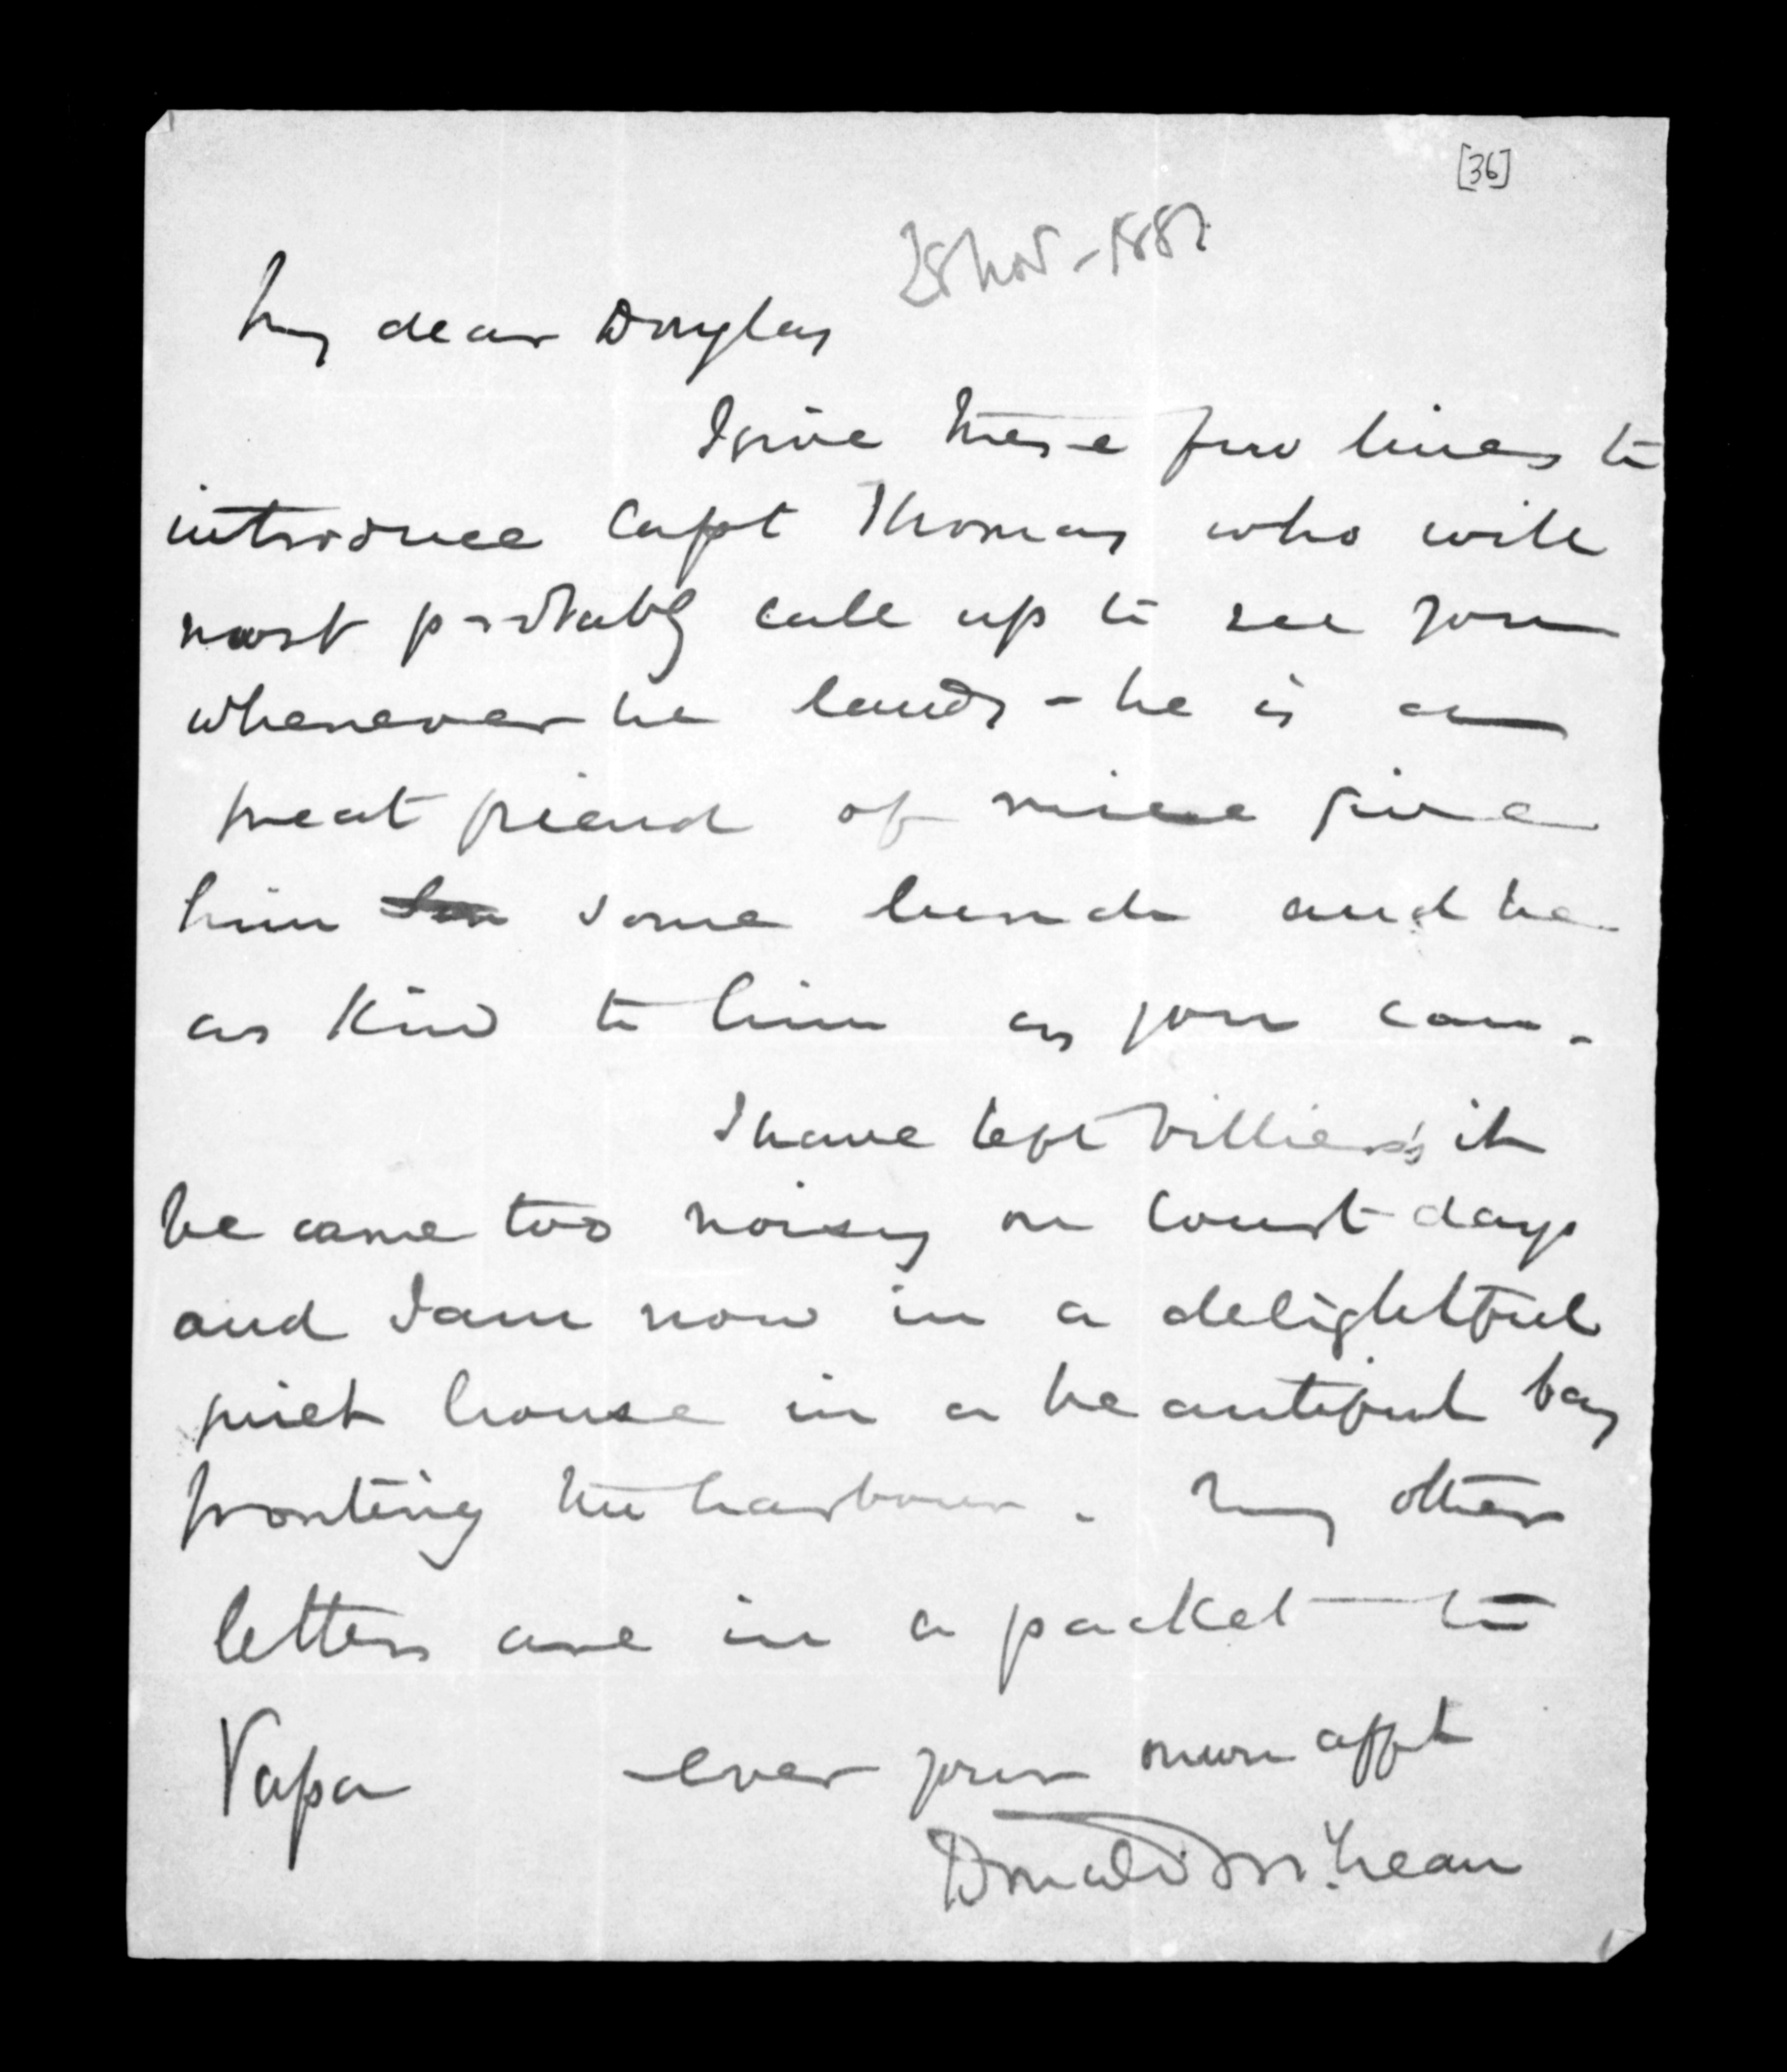 [36]
28 Nov - 188
My dear Douglas
I give these few lines to
introduce Capt Thomas who will
most probably call up to see you
whenever he lands - he is a
great friend of mine give
him some lunch and be
as kind to him as you can.
I have left Villiers's it
became too noisy on Court days
and I am now in a delightful
quiet house in a beautiful bay
fronting the harbour. My other
letters are in a packet to
Papa ever your own afft
Donald McLean